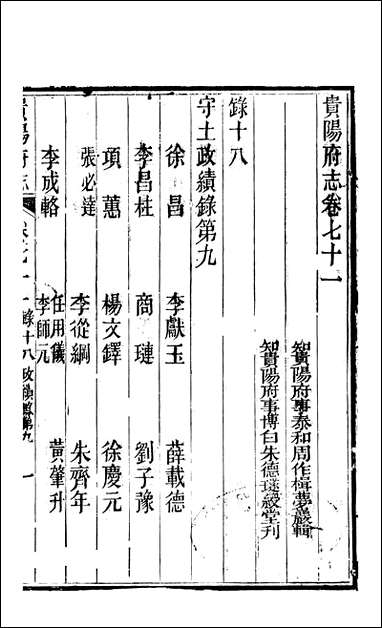 貴陽府志卷七十一
知貴陽府事泰和周作楫夢巖輯
知貴陽府事博白朱德璲綬堂刊
錄十八
守土政績錄第九
徐昌 李獻玉 薛載德
李昌柱 商璉 劉子豫
項蕙 楊文鐸 徐慶元
張必達 李從綱 朱齊年
李成輅 任用儀 黃肇升
李師元
貴陽府志 卷七十一 錄十八政績錄第九 一